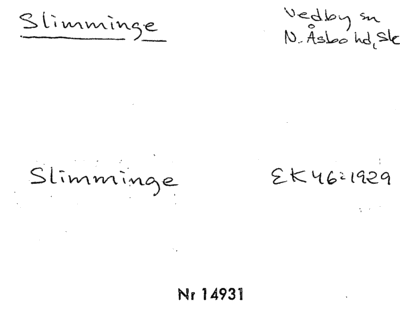 Slimminge
Vedby sn
N. Åsbo hd, Sk
Slimminge
EK 46:1929
Nr 14931